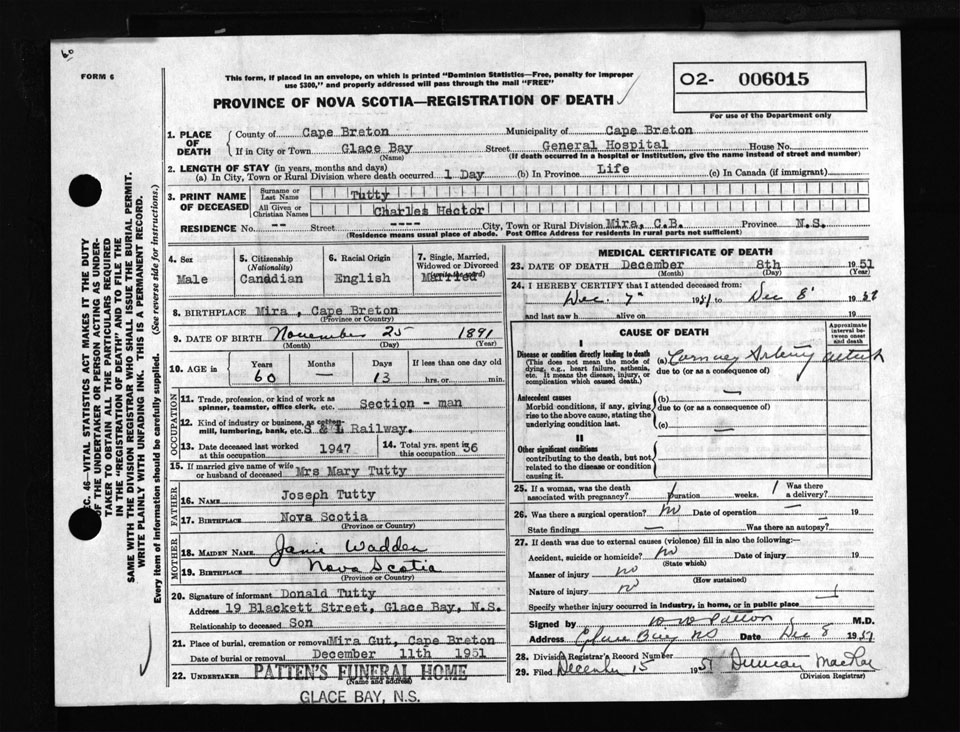 60
FORM 6
This form, if placed in an envelope, on which is printed "Dominion Statistics—Free, penalty for improper
use $300," and properly addressed will pass through the mail "FREE"
PROVINCE OF NOVA SCOTIA—REGISTRATION OF DEATH
02- 006015
For use of the Department only
1. PLACE OF DEATH
County of Cape Breton Municipality of Cape Breton
If in City or Town Glace Bay Street General Hospital House No.
(Name) (If death occurred in a hospital or institution, give the name instead of street and number)
2. LENGTH OF STAY (in years, months and days)
(a) In City, Town or Rural Division where death occurred 1 Day (b) In Province Life (c) In Canada (if immigrant)
3. PRINT NAME OF DECEASED
Surname or Last Name Tutty
All Given or Christian Names Charles Hector
RESIDENCE No. -- Street ---- City, Town or Rural Division Mira, C.B. Province N.S.
(Residence means usual place of abode. Post Office Address for residents in rural parts not sufficient)
4. Sex
Male
5. Citizenship
(Nationality)
Canadian
6. Racial Origin
English
7. Single, Married, Widowed or Divorced
Married
8. BIRTHPLACE Mira, Cape Breton
(Province or Country)
9. DATE OF BIRTH November 25 1891
(Month) (Day) (Year)
10. AGE in
Years Months Days If less than one day old
60 — 13 hrs. or min.
OCCUPATION
11. Trade, profession, or kind of work as
spinner, teamster, office clerk, etc. Section - man
12. Kind of industry or business, as cotton-
mill, lumbering, bank, etc. S & L Railway.
13. Date deceased last worked
at this occupation 1947
14. Total yrs. spent in
this occupation 36
15. If married give name of wife
or husband of deceased Mrs Mary Tutty
FATHER
16. NAME Joseph Tutty
17. BIRTHPLACE Nova Scotia
(Province or Country)
MOTHER
18. MAIDEN NAME Janie Wadden
19. BIRTHPLACE Nova Scotia
(Province or Country)
20. Signature of informant Donald Tutty
Address 19 Blackett Street, Glace Bay, N.S.
Relationship to deceased Son
21. Place of burial, cremation or removal Mira Gut, Cape Breton
Date of burial or removal December 11th 1951
22. UNDERTAKER PATTEN'S FUNERAL HOME
(Name and address)
GLACE BAY, N.S.
MEDICAL CERTIFICATE OF DEATH
23. DATE OF DEATH December 8th 1951
(Month) (Day) (Year)
24. I HEREBY CERTIFY that I attended deceased from:
Dec. 7 1951 to Dec 8 19
and last saw h alive on 19
CAUSE OF DEATH
Approximate interval between onset and death
I
Disease or condition directly leading to death
(This does not mean the mode of
dying, e.g., heart failure, asthenia,
etc. It means the disease, injury, or
complication which caused death.)
(a)
due to (or as a consequence of)
Antecedent causes
Morbid conditions, if any, giving
rise to the above cause, stating the
underlying condition last.
(b) —
due to (or as a consequence of)
(c) —
II
Other significant conditions
contributing to the death, but not
related to the disease or condition
causing it.
25. If a woman, was the death
associated with pregnancy? Duration weeks. Was there
a delivery?
26. Was there a surgical operation? no Date of operation — 19
State findings — Was there an autopsy?
27. If death was due to external causes (violence) fill in also the following:—
Accident, suicide or homicide? no Date of injury 19
(State which)
Manner of injury no
(How sustained)
Nature of injury no
Specify whether injury occurred in industry, in home, or in public place
Signed by M.D.
Address Glace Bay NS Date Dec 8 1951
28. Division Registrar's Record Number
29. Filed December 15 1951 Duncan MacRae
(Division Registrar)
SEC. 46—VITAL STATISTICS ACT MAKES IT THE DUTY
OF THE UNDERTAKER OR PERSON ACTING AS UNDER-
TAKER TO OBTAIN ALL THE PARTICULARS REQUIRED
IN THE "REGISTRATION OF DEATH" AND TO FILE THE
SAME WITH THE DIVISION REGISTRAR WHO SHALL ISSUE THE BURIAL PERMIT.
WRITE PLAINLY WITH UNFADING INK. THIS IS A PERMANENT RECORD.
Every item of information should be carefully supplied. (See reverse side for instructions.)